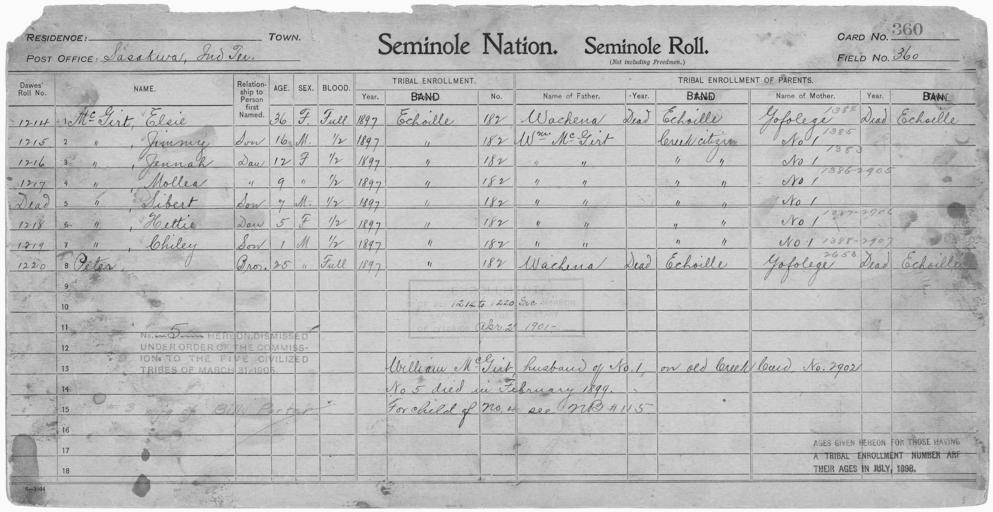 RESIDENCE: TOWN. Seminole Nation. Seminole Roll. CARD NO. 360
POST OFFICE: Sasakwa, Ind Ter. (Not including Freedmen.) FIELD NO. 360
Dawes' Roll No. NAME. Relationship to Person first Named. AGE. SEX. BLOOD. TRIBAL ENROLLMENT. TRIBAL ENROLLMENT OF PARENTS.
Year. BAND No. Name of Father. Year. BAND Name of Mother. Year. BAN.
1214 1 McGirt, Elsie 36 F. Full 1897 Echoille 182 Wachena Dead Echoille Yofolege Dead Echoille
1215 2 " , Jimmy Son 16 M. 1/2 1897 " 182 Wm McGirt Creek citizen No 1 1385
1216 3 " , Jennah Dau 12 F 1/2 1897 " 182 " " " " No 1
1217 4 " , Mollea " 9 " 1/2 1897 " 182 " " " " No 1 1386-2905
Dead 5 " , Sibert Son 7 M. 1/2 1897 " 182 " " " " No 1
1218 6 " , Hettie Dau 5 F 1/2 1897 " 182 " " " " No 1
1219 7 " , Chiley Son 1 M 1/2 1897 " 182 " " " " No 1 1388-2907
1220 8 Peter Bro. 25 " Full 1897 " 182 Wachena Dead Echoille Yofolege Dead Echoille
9
10 1214 to 1220
11 Apr 2 1901-
No. 5 HEREON DISMISSED
UNDER ORDER OF THE COMMISS-
12
ION TO THE FIVE CIVILIZED
TRIBES OF MARCH 31, 1905.
13 William McGirt, husband of No. 1, on old Creek Card No. 2902
14 No 5 died in February 1899.
15 For child of No. 4 see NB #115
16
AGES GIVEN HEREON FOR THOSE HAVING
17 A TRIBAL ENROLLMENT NUMBER ARE
18 THEIR AGES IN JULY, 1898.